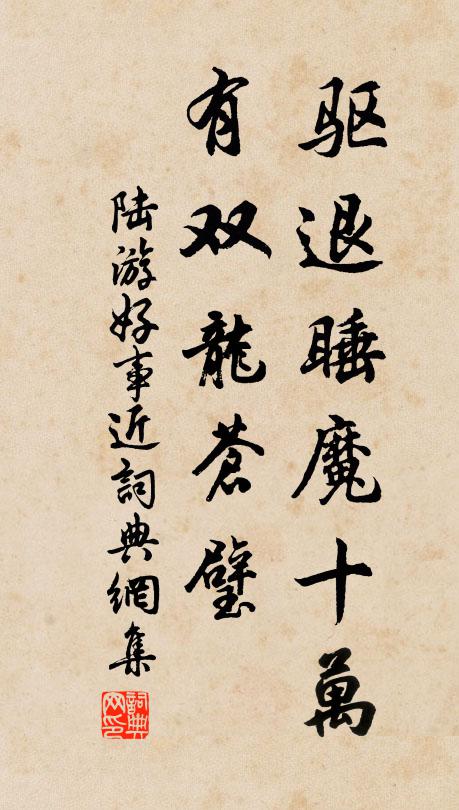 驱退睡魔十萬
有双龍蒼璧
陆游好事近詞典網集
詞典网印